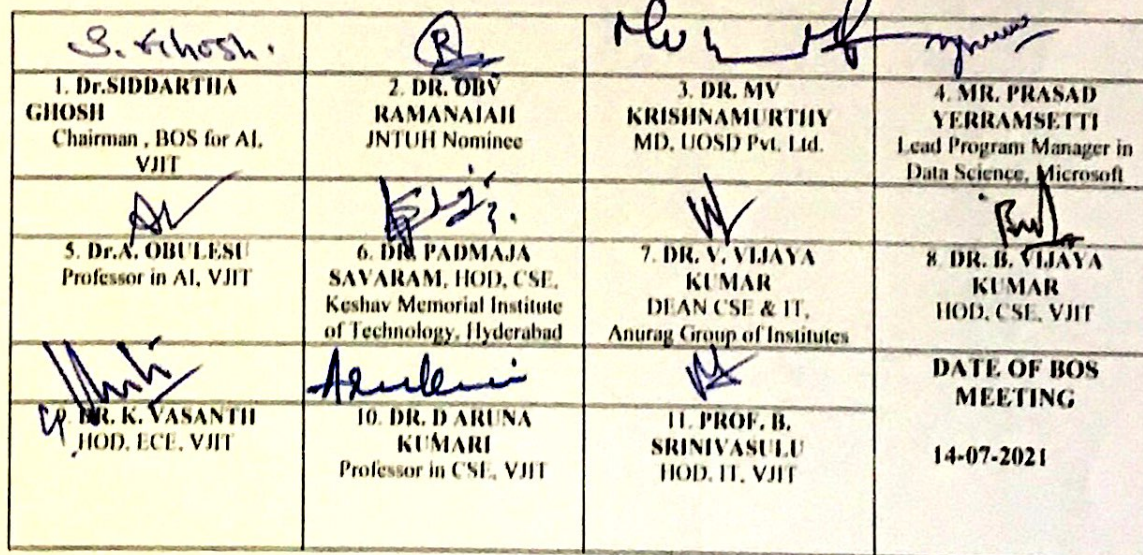 S. Ghosh.
1. Dr.SIDDARTHA
GHOSH
Chairman , BOS for AI,
VJIT
2. DR. OBV
RAMANAIAH
JNTUH Nominee
3. DR. MV
KRISHNAMURTHY
MD, UOSD Pvt. Ltd.
4. MR. PRASAD
YERRAMSETTI
Lead Program Manager in
Data Science, Microsoft
5. Dr.A. OBULESU
Professor in AI, VJIT
6. DR. PADMAJA
SAVARAM, HOD, CSE,
Keshav Memorial Institute
of Technology, Hyderabad
7. DR. V. VIJAYA
KUMAR
DEAN CSE & IT,
Anurag Group of Institutes
8. DR. B. VIJAYA
KUMAR
HOD, CSE, VJIT
DR. K. VASANTH
HOD, ECE, VJIT
10. DR. D ARUNA
KUMARI
Professor in CSE, VJIT
11. PROF. B.
SRINIVASULU
HOD, IT, VJIT
DATE OF BOS
MEETING
14-07-2021